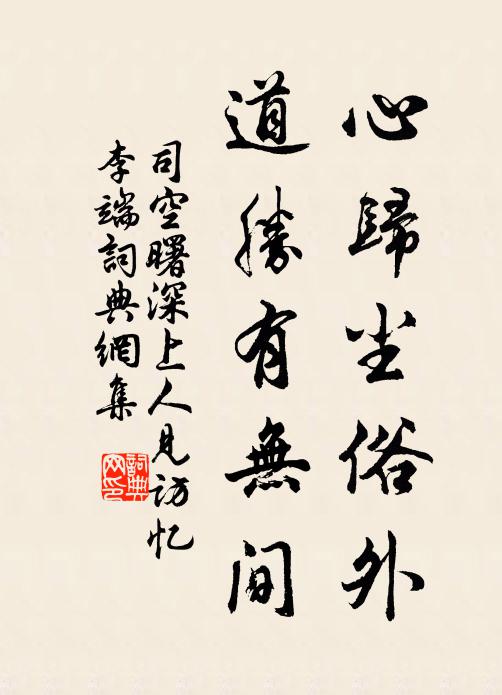 心歸尘俗外
道勝有無間
司空曙深上人見访忆
李端詞典網集
詞典
网印